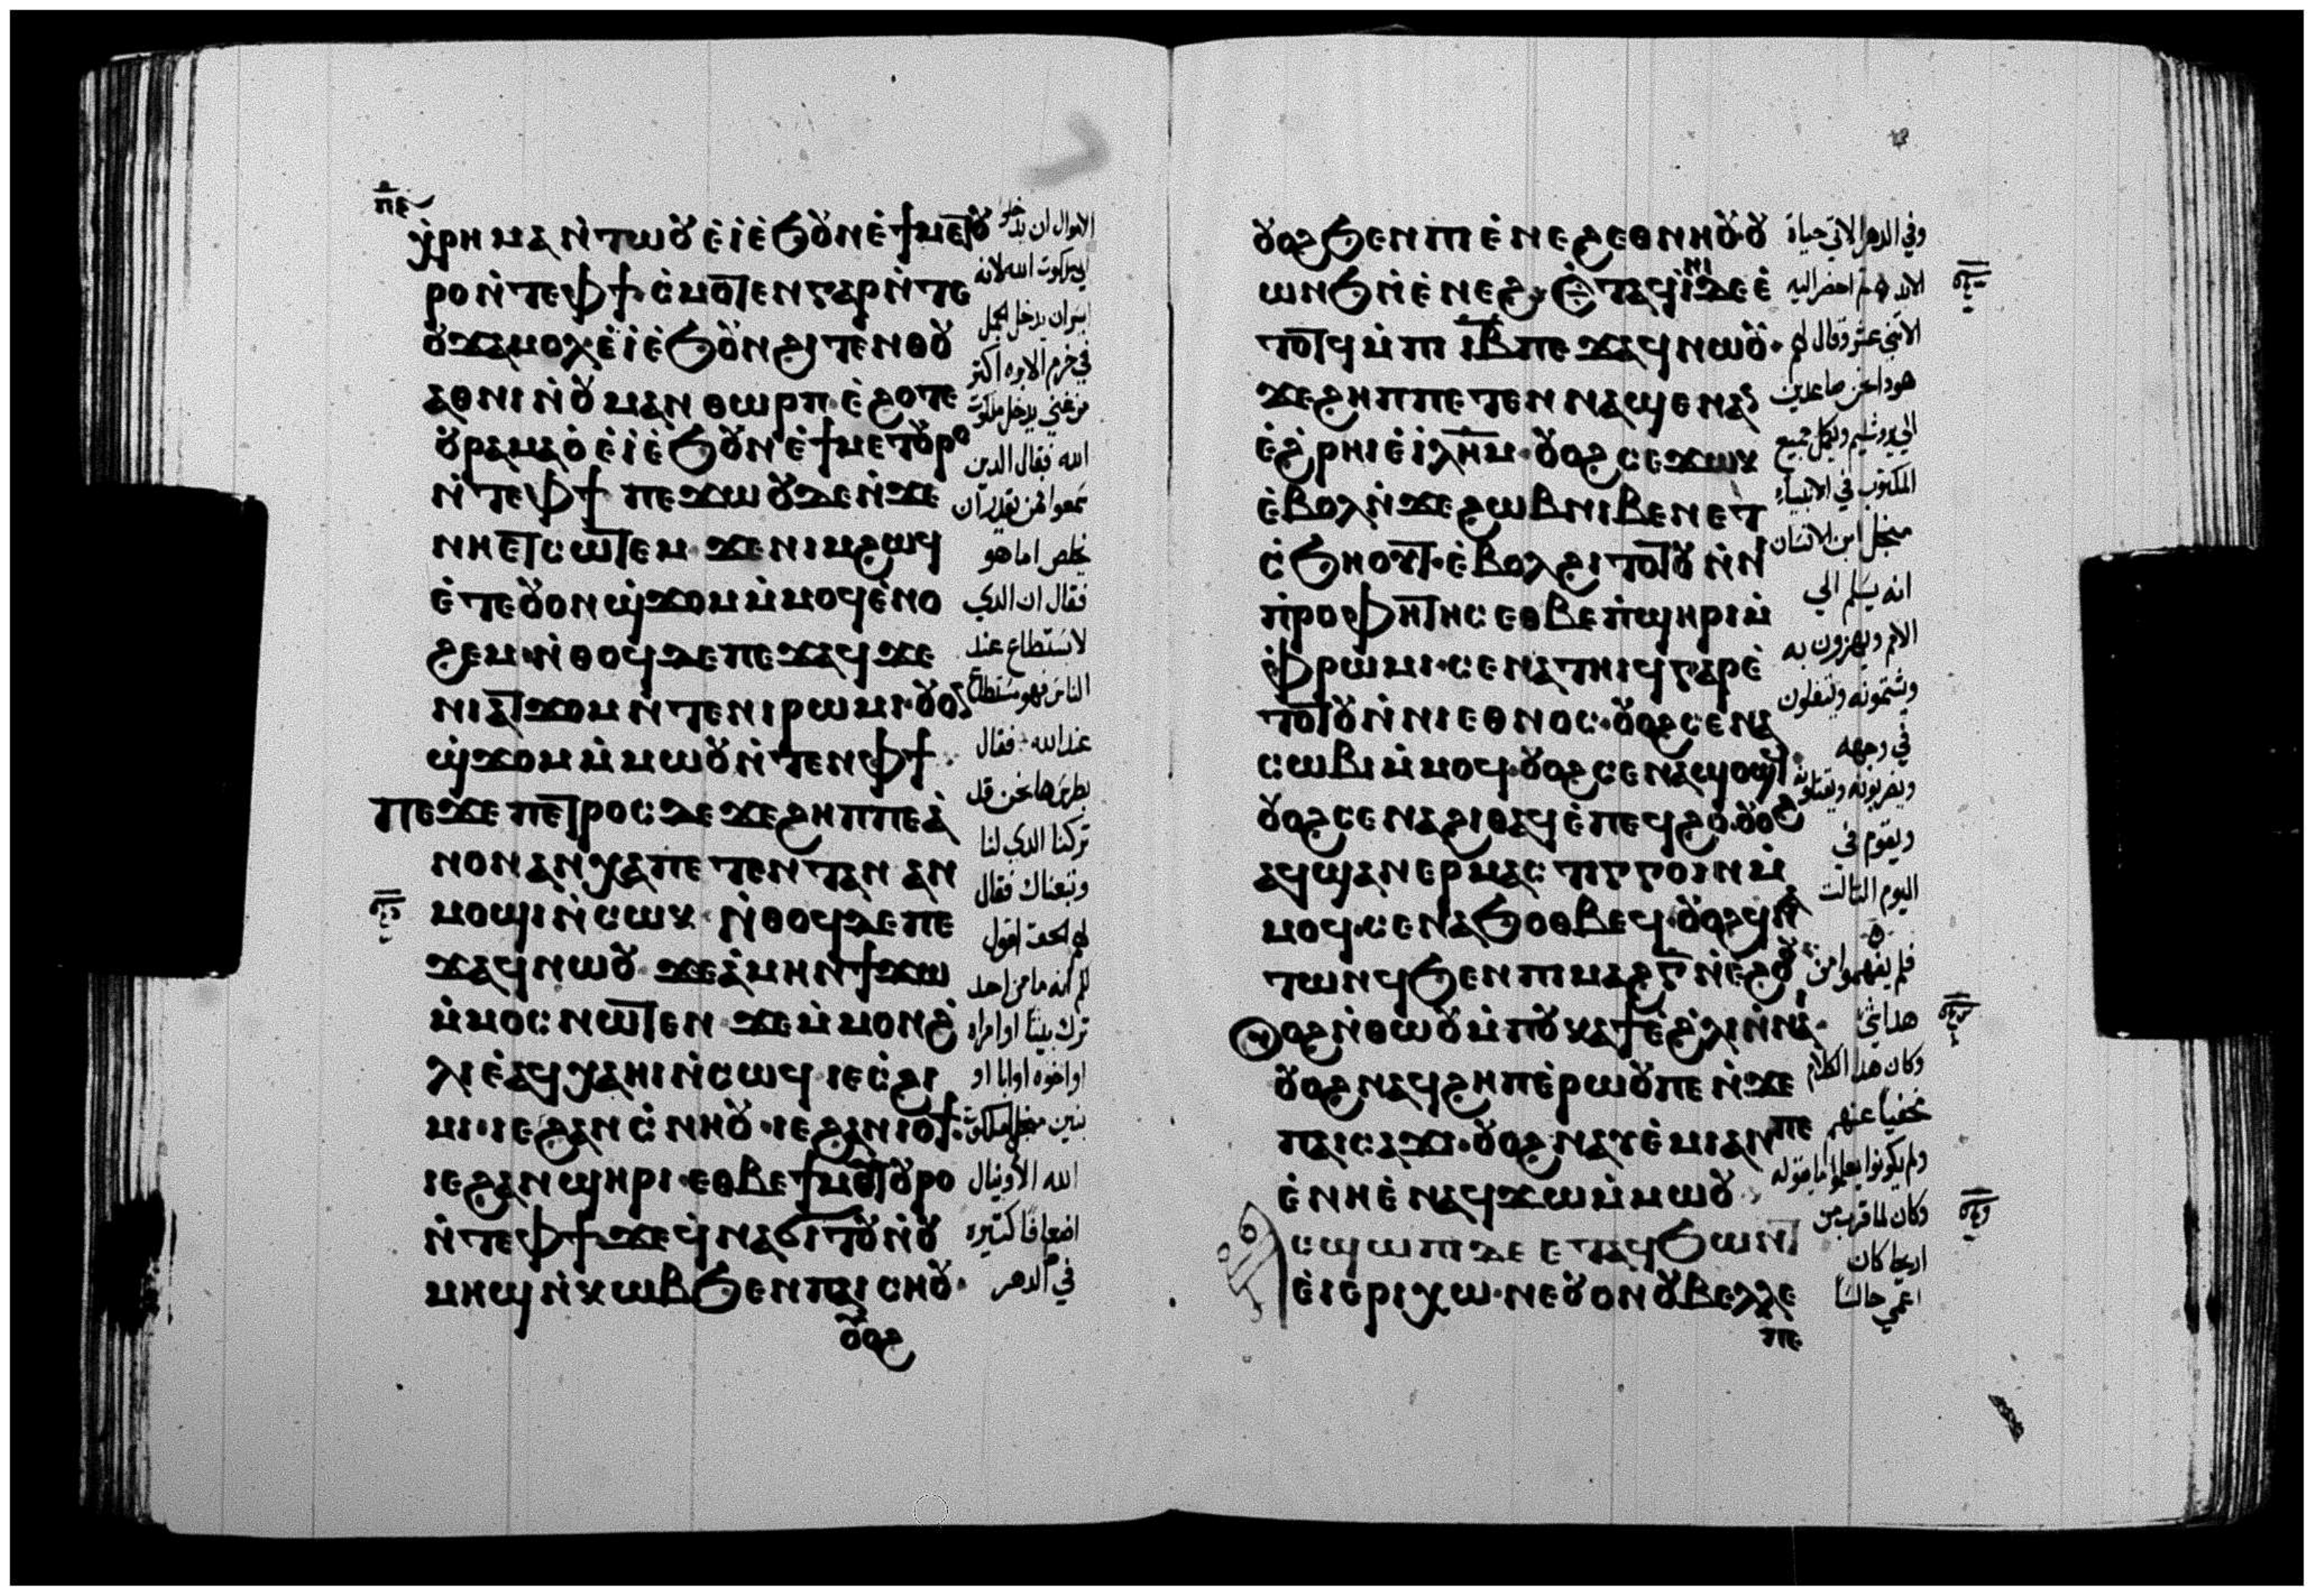 ⲡⲉ
ⲭⲣⲏⲙⲁ ⲛ̀ⲧⲱⲟⲩ ⲉ̀ⲓ ⲉ̀ϧⲟⲩⲛ ⲉ̀ϯⲙⲉⲧⲟⲩ
ⲣⲟ ⲛ̀ⲧⲉⲫϯ. ⲥ̀ⲙⲟⲧⲉⲛ ⲅⲁⲣ ⲛ̀ⲧⲉ
ⲟⲩϫⲁⲙⲟⲩⲗ ⲉ̀ⲓ ⲉ̀ϧⲟⲩⲛ ϩⲓⲧⲉⲛ ⲑⲟⲩ
ⲁⲑⲛⲓ ⲛ̀ⲟⲩⲙⲁⲛⲑⲱⲣⲡ. ⲉ̀ϩⲟⲧⲉ
ⲟⲩⲣⲁⲙⲁⲟ̀ ⲉ̀ⲓ ⲉ̀ϧⲟⲩⲛ ⲉ̀ϯⲙⲉⲧⲟⲩⲣⲟ
ⲛ̀ⲧⲉⲫϯ ⲡⲉϫⲱⲟⲩ ⲇⲉ ⲛ̀ϫⲉ
ⲛⲏⲉⲧⲥⲱⲧⲉⲙ ϫⲉ ⲛⲓⲙ ϩⲱϥ
ⲉ̀ⲧⲉⲟⲩⲟⲛ ϣ̀ϫⲟⲙ ⲙ̀ⲙⲟϥ ⲉ̀ⲛⲟ
ϩⲉⲙ. ⲛ̀ⲑⲟϥ ⲇⲉ ⲡⲉϫⲁϥ ϫⲉ
ⲛⲓⲁⲧϫⲟⲙ ⲛ̀ⲧⲉⲛ ⲛⲓⲣⲱⲙⲓ. ⲟⲩⲟ
ϣ̀ϫⲟⲙ ⲙ̀ⲙⲱⲟⲩ ⲛ̀ⲧⲉⲛ ⲫϯ.
ⲡⲉϫⲉ ⲡⲉⲧⲣⲟⲥ ⲇⲉ ϫⲉ ϩⲏⲡⲡⲉ ⲁ̀
ⲛⲟⲛ ⲁⲛⲭⲁ ⲡⲉⲧⲉⲛⲧⲁⲛ ⲁⲛ
ⲙⲟϣⲓ ⲛ̀ⲥⲱⲕ. ⲛ̀ⲑⲟϥ ⲇⲉ ⲡⲉ
ϫⲁϥ ⲛⲱⲟⲩ ϫⲉ ⲁ̀ⲙⲏⲛ ϯϫⲱ
ⲙ̀ⲙⲟⲥ ⲛⲱⲧⲉⲛ ϫⲉ ⲙ̀ⲙⲟⲛ ϩ̀
ⲗⲓ ⲉ̀ⲁϥⲭⲁ ⲏⲓ ⲛ̀ⲥⲱϥ ⲓⲉ ⲥ̀ϩⲓ
ⲙⲓ. ⲓⲉ ϩⲁⲛⲥ̀ⲛⲏⲟⲩ. ⲓⲉ ϩⲁⲛⲓⲟϯ.
ⲓⲉ ϩⲁⲛϣⲏⲣⲓ. ⲉⲑⲃⲉ ϯⲙⲉⲧⲟⲩⲣⲟ
ⲛ̀ⲧⲉⲫϯ ϫⲉ ϥ̀ⲛⲁϭⲓⲧⲟⲩ ⲛ̀ⲟⲩ
ⲙⲏϣ ⲛ̀ⲕⲱⲃ ϧⲉⲛ ⲡⲁⲓ ⲥⲏⲟⲩ.
ⲟⲩⲟϩ
الاموال ان يدخل
الي ملكوت الله لانه
ايسر ان يدخل الجمل
في خرم الابره اكتر
من غني يدخل ملكوت
الله فقال الدين
سمعوا فمن يقدر ان
يخلص اما هو
فقال ان الدي
لا يستطاع عند
الناس فهو مستطاع
عند الله. فقال
بطرس ها نحن قد
تركنا الدي لنا
وتبعناك فقال
لهم الحق اقول
لكم انه ما من احد
ترك بيتا او امراه
او اخوه او ابا او
بنين من اجل ملكوت
الله الا وينال
اضعافا كتيره
في الدهر
ⲟⲩⲟϩ ϧⲉⲛ ⲡⲓⲉ̀ⲛⲉϩ ⲉⲑⲛⲏⲟⲩ ⲟⲩ
ⲱⲛϧ ⲛ̀ⲉ̀ⲛⲉϩ. ⲉ̀ⲧⲁϥⲓ̀ⲛⲓ ⲇⲉ ⲉ̀
ⲧⲟⲧϥ ⲙ̀ⲡⲓⲓⲃ ⲡⲉϫⲁϥ ⲛⲱⲟⲩ.
ϫⲉ ϩⲏⲡⲡⲉ ⲧⲉⲛⲛⲁϣⲉ ⲛⲁⲛ
ⲉ̀ϩ̀ⲣⲏⲓ ⲉ̀ⲓⲗⲏⲙ. ⲟⲩⲟϩ ⲥⲉϫⲱⲕ
ⲉ̀ⲃⲟⲗ ⲛ̀ϫⲉ ϩⲱⲃ ⲛⲓⲃⲉⲛ ⲉⲧ
ⲥ̀ϧⲏⲟⲩⲧ. ⲉ̀ⲃⲟⲗ ϩⲓⲧⲟⲧⲟⲩ ⲛ̀ⲛⲓ
ⲡ̀ⲣⲟⲫⲏⲧⲏⲥ ⲉⲑⲃⲉ ⲡ̀ϣⲏⲣⲓ ⲙ̀
ⲫ̀ⲣⲱⲙⲓ. ⲥⲉⲛⲁⲧⲏⲓϥ ⲅⲁⲣ ⲉ̀
ⲧⲟⲧⲟⲩ ⲛ̀ⲛⲓⲉⲑⲛⲟⲥ. ⲟⲩⲟϩ ⲥⲉⲛⲁ
ⲥⲱⲃⲓ ⲙ̀ⲙⲟϥ. ⲟⲩⲟϩ ⲥⲉⲛⲁϣⲟϣϥ.
ⲟⲩⲟϩ ⲥⲉⲛⲁϩⲓⲑⲁϥ ⲉ̀ⲡⲉϥϩⲟ. ⲟⲩⲟϩ
ⲁϥϣⲁⲛⲉⲣⲙⲁⲥⲧⲓⲅⲅⲟⲓⲛ ⲙ̀
ⲙⲟϥ. ⲥⲉⲛⲁϧⲟⲑⲃⲉϥ. ⲟⲩⲟϩ ϥⲛⲁ
ⲧⲱⲛϥ ϧⲉⲛ ⲡⲓⲙⲁϩ ⲅ̅ ⲛ̀ⲉ̀ϩⲟⲟⲩ
ⲟⲩⲟϩ ⲛ̀ⲑⲱⲟⲩ ⲙ̀ⲡⲟⲩⲕⲁϯ ⲉ̀ϩ̀ⲗⲓ ⲛ̀ⲛⲁⲓ.
ⲟⲩⲟϩ ⲛⲁϥϩⲏⲡ ⲉ̀ⲣⲱⲟⲩ ⲡⲉ ⲛ̀ϫⲉ
ⲡⲁⲓⲥⲁϫⲓ. ⲟⲩⲟϩ ⲛⲁⲩⲉ̀ⲙⲓ ⲁⲛ ⲡⲉ
ⲉ̀ⲛⲏ ⲉ̀ⲛⲁϥϫⲱ ⲙ̀ⲙⲱⲟⲩ.
ⲥϣⲱⲡⲓ ⲇⲉ ⲉⲧⲁϥϧⲱⲛⲧ
ⲉ̀ⲓⲉⲣⲓⲭⲱ. ⲛⲉ ⲟⲩⲟⲛ ⲟⲩⲃⲉⲗⲗⲉ
ⲡⲉ
وفي الدهر الاتي حياة
الابد ثم احضر اليه
الاتني عشر وقال لهم
هودا نحن صاعدين
الي يروشليم ويكمل جميع
المكتوب في الانبياء
من اجل ابن الانسان
انه يسلم الي
الامم ويهزون به
ويشتمونه ويتفلون
في وجهه
ويضربونه ويقتلونه
ويقوم في
اليوم التالت
فلم يفهموا من
هدا شئ
وكان هدا الكلام
مخفيا عنهم
ولم يكونوا يعلموا ما يقوله
وكان لما قرب من
اريحا كان
اعمي جالسا